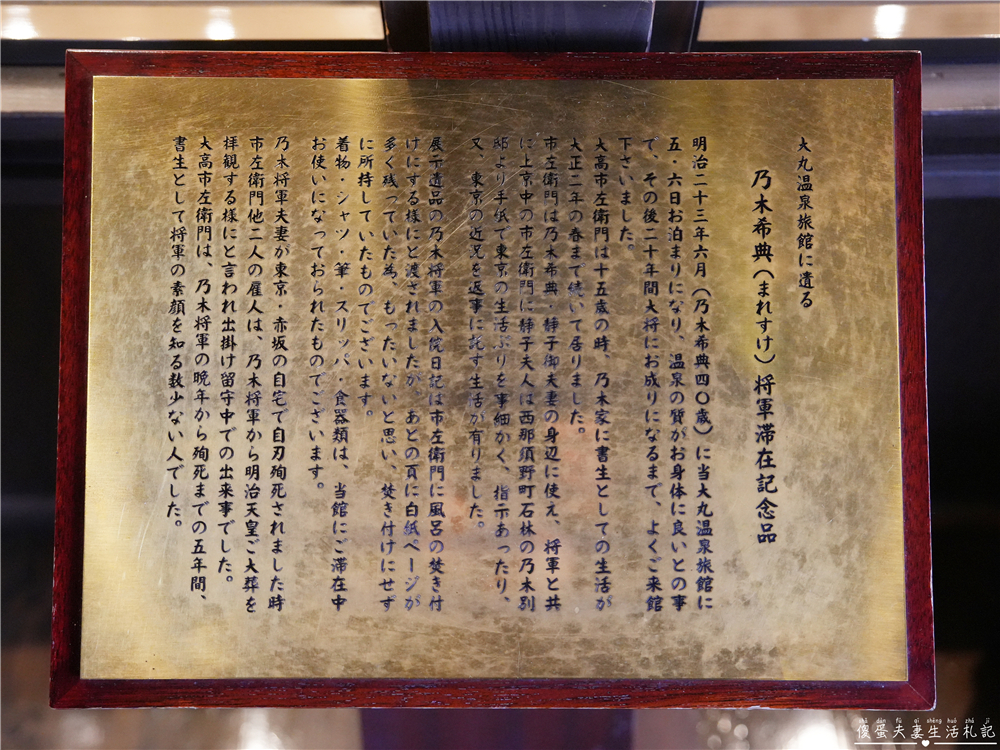 大丸温泉旅館に遺る
乃木希典(まれすけ)将軍滞在記念品
明治二十三年六月(乃木希典四〇歳)に当大丸温泉旅館に
五・六日お泊まりになり、温泉の質がお身体に良いとの事
て、その後二十年間大将にお成りになるまで、よくご来館
下さいました。
大高市左衛門は十五歳の時、乃木家に書生としての生活が
大正二年の春まで続いて居りました。
市左衛門は乃木希典・静子御夫妻の身辺に使え、将軍と共
に上京中の市左衛門に静子夫人は西那須野町石林の乃木別
邸より手紙で東京の生活ぶりを事細かく、指示あったり、
又、東京の近況を返事に託す生活が有りました。
展示遺品の乃木将軍の入院日記は市左衛門に風呂の焚き付
けにする様にと渡されましたが、あとの頁に白紙ページが
多く残っていた為、もったいないと思い、焚き付けにせず
に所持していたものでございます。
着物・シャツ・筆・スリッパ・食器類は、当館にご滞在中
お使いになっておられたものでございます。
乃木将軍夫妻が東京・赤坂の自宅で自刃殉死されました時
市左衛門他二人の雇人は、乃木将軍から明治天皇ご大葬を
拝観する様にと言われ出掛け留守中での出来事でした。
大高市左衛門は、乃木将軍の晩年から殉死までの五年間、
書生として将軍の素顔を知る数少ない人でした。
shǎ dàn fū qī shēng huó zhá jì
傻蛋夫妻生活札記